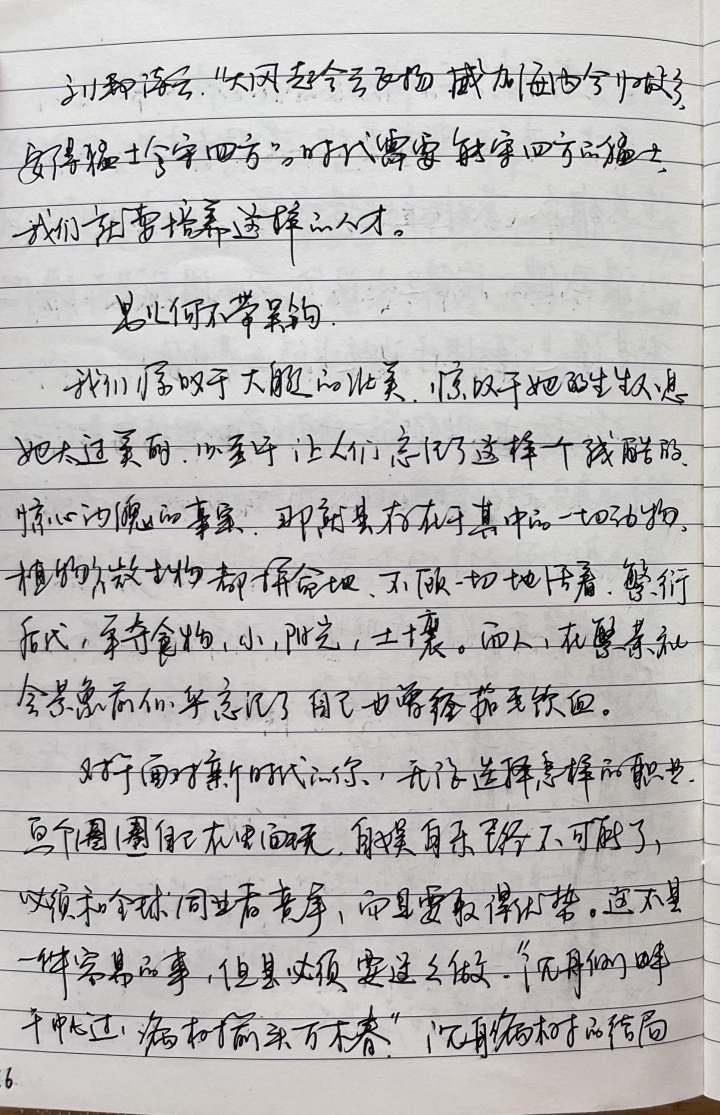 刘邦诗云，“大风起兮云飞扬 威加海内兮归故乡，
安得猛士兮守四方”。时代需要能守四方的猛士，
我们就要培养这样的人才。
男儿何不带吴钩
我们惊叹于大自然的壮美，惊叹于她的生生不息
她太过美丽，以至于让人们忘记了这样一个残酷的、
惊心动魄的事实，那就是存在于其中的一切动物、
植物微生物都拼命地、不顾一切地活着，繁衍
后代，争夺食物，水，阳光，土壤。而人，在繁荣社
会景象前似乎忘记了自己也曾经茹毛饮血。
对于面对新时代的你，无论选择怎样的职业，
画个圈圈自己在里面玩，自娱自乐已经不可能了，
必须和全球同业者竞争，而且要取得优势。这不是
一件容易的事，但是必须要这么做。“沉舟侧畔
千帆过，病树前头万木春”沉舟病树的结局
6